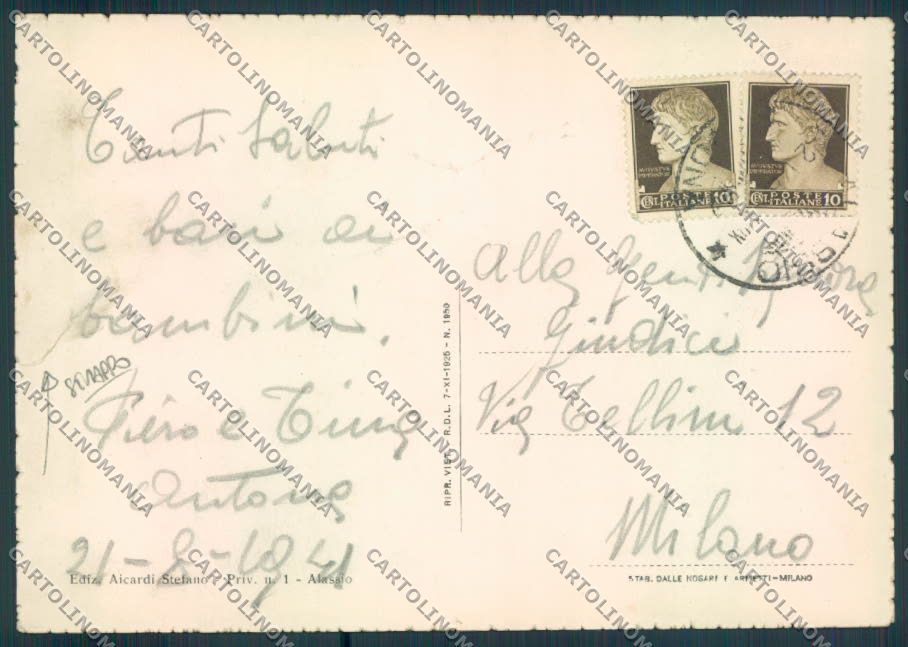 Tanti Saluti
e baci ai
bambini.
Piero e Tina
Antona
21-8-1941
STRAPPO
Ediz. Aicardi Stefano - Priv. n. 1 - Alassio
RIPR. VIET. R.D.L. 7-XI-1925 - N. 1950
AVGVSTVS
IMPERATOR
CENT. POSTE ITALIANE 10
AVGVSTVS
IMPERATOR
CENT. POSTE ITALIANE 10
Alla Gent. Signora
Giudici
Via Tellini 12
Milano
STAB. DALLE NOGARE E ARMETTI-MILANO
CARTOLINOMANIA